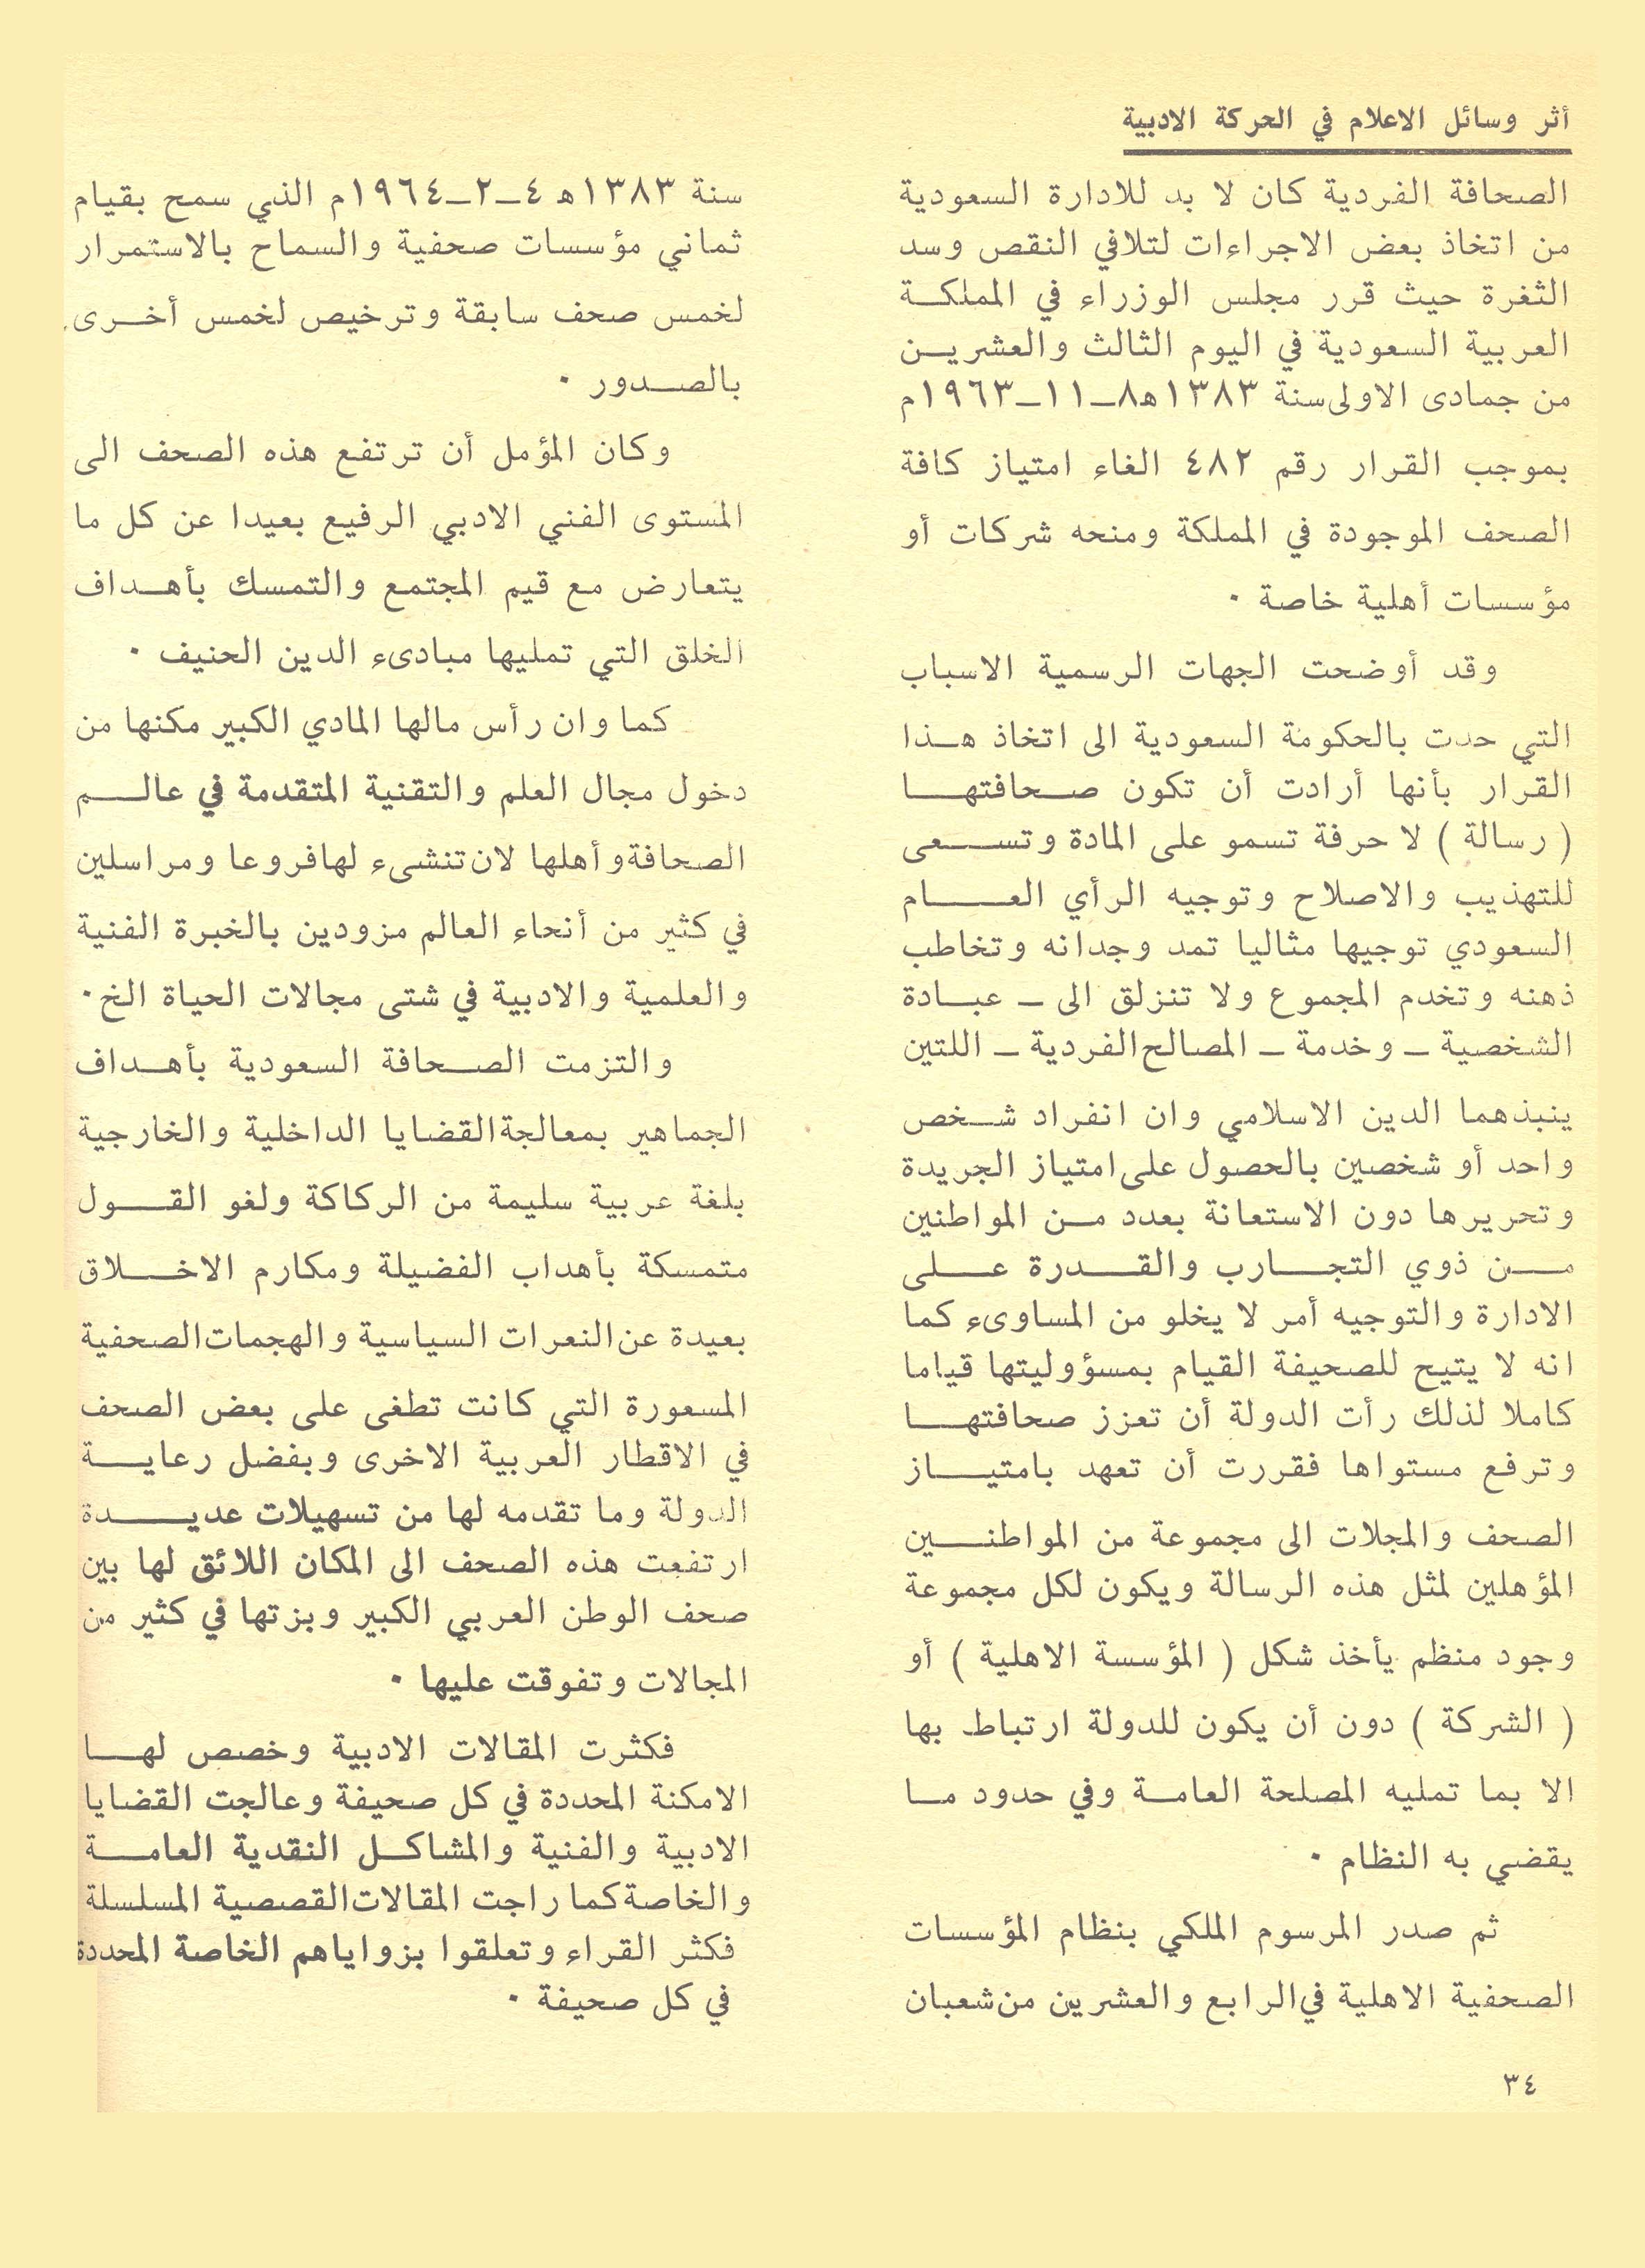 أثر وسائل الاعلام في الحركة الادبية
الصحافة الفردية كان لا بد للادارة السعودية
من اتخاذ بعض الاجراءات لتلافي النقص وسد
الثغرة حيث قرر مجلس الوزراء في المملكة
العربية السعودية في اليوم الثالث والعشرين
من جمادى الاولى سنة ١٣٨٣هـ ٨ـ١١ـ١٩٦٣م
بموجب القرار رقم ٤٨٢ الغاء امتياز كافة
الصحف الموجودة في المملكة ومنحه شركات أو
مؤسسات أهلية خاصة ٠
وقد أوضحت الجهات الرسمية الاسباب
التي حدت بالحكومة السعودية الى اتخاذ هذا
القرار بأنها أرادت أن تكون صحافتها
( رسالة ) لا حرفة تسمو على المادة وتسعى
للتهذيب والاصلاح وتوجيه الرأي العام
السعودي توجيها مثاليا تمد وجدانه وتخاطب
ذهنه وتخدم المجموع ولا تنزلق الى ـ عبادة
الشخصية ـ وخدمة ـ المصالح الفردية ـ اللتين
ينبذهما الدين الاسلامي وان انفراد شخص
واحد أو شخصين بالحصول على امتياز الجريدة
وتحريرها دون الاستعانة بعدد من المواطنين
من ذوي التجارب والقدرة على
الادارة والتوجيه أمر لا يخلو من المساوىء كما
انه لا يتيح للصحيفة القيام بمسؤوليتها قياما
كاملا لذلك رأت الدولة أن تعزز صحافتها
وترفع مستواها فقررت أن تعهد بامتياز
الصحف والمجلات الى مجموعة من المواطنين
المؤهلين لمثل هذه الرسالة ويكون لكل مجموعة
وجود منظم يأخذ شكل ( المؤسسة الاهلية ) أو
( الشركة ) دون أن يكون للدولة ارتباط بها
الا بما تمليه المصلحة العامة وفي حدود ما
يقضي به النظام ٠
ثم صدر المرسوم الملكي بنظام المؤسسات
الصحفية الاهلية في الرابع والعشرين من شعبان
سنة ١٣٨٣هـ ٤ـ٢ـ١٩٦٤م الذي سمح بقيام
ثماني مؤسسات صحفية والسماح بالاستمرار
لخمس صحف سابقة وترخيص لخمس أخرى
بالصدور ٠
وكان المؤمل أن ترتفع هذه الصحف الى
المستوى الفني الادبي الرفيع بعيدا عن كل ما
يتعارض مع قيم المجتمع والتمسك بأهداف
الخلق التي تمليها مبادىء الدين الحنيف ٠
كما وان رأس مالها المادي الكبير مكنها من
دخول مجال العلم والتقنية المتقدمة في عالم
الصحافة وأهلها لان تنشىء لها فروعا ومراسلين
في كثير من أنحاء العالم مزودين بالخبرة الفنية
والعلمية والادبية في شتى مجالات الحياة الخ ٠
والتزمت الصحافة السعودية بأهداف
الجماهير بمعالجة القضايا الداخلية والخارجية
بلغة عربية سليمة من الركاكة ولغو القول
متمسكة بأهداب الفضيلة ومكارم الاخلاق
بعيدة عن النعرات السياسية والهجمات الصحفية
المسعورة التي كانت تطغى على بعض الصحف
في الاقطار العربية الاخرى وبفضل رعاية
الدولة وما تقدمه لها من تسهيلات عديدة
ارتفعت هذه الصحف الى المكان اللائق لها بين
صحف الوطن العربي الكبير وبزتها في كثير من
المجالات وتفوقت عليها ٠
فكثرت المقالات الادبية وخصص لها
الامكنة المحددة في كل صحيفة وعالجت القضايا
الادبية والفنية والمشاكل النقدية العامة
والخاصة كما راجت المقالات القصصية المسلسلة
فكثر القراء وتعلقوا بزواياهم الخاصة المحددة
في كل صحيفة ٠
٣٤